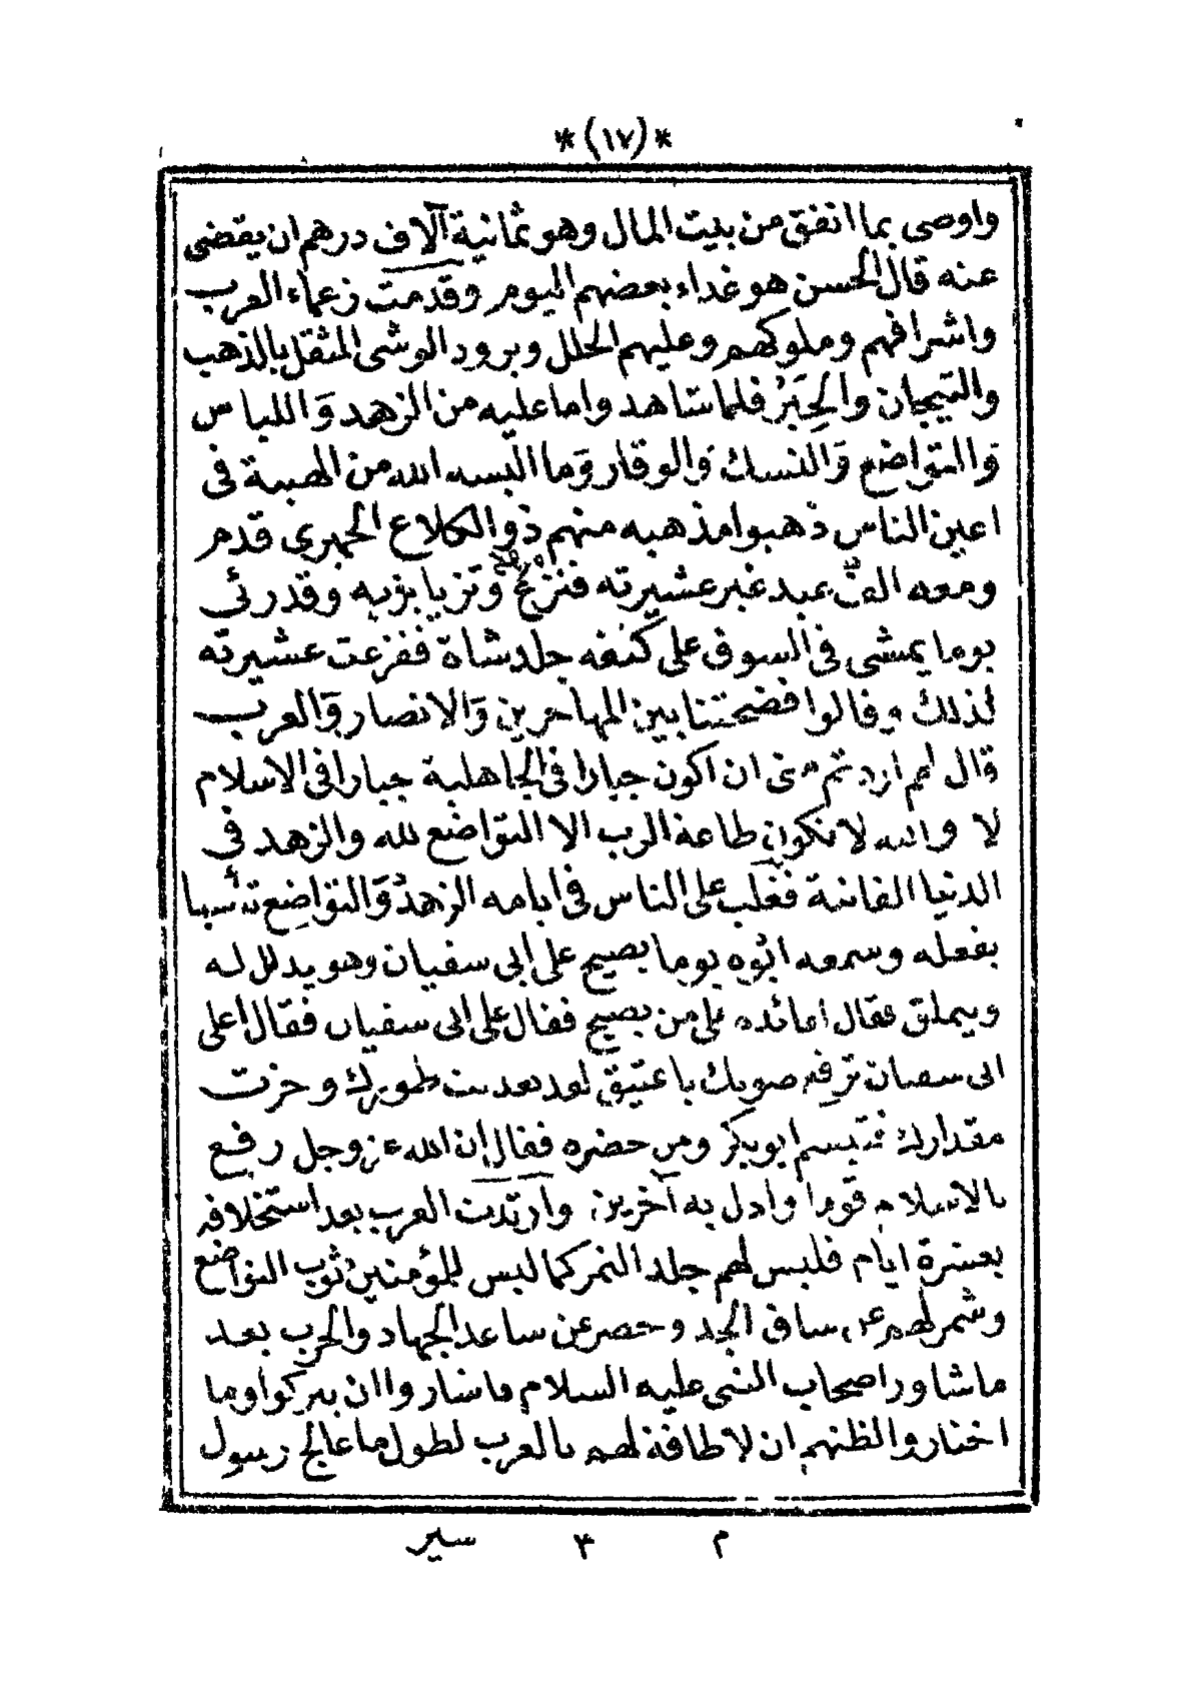 *(١٧)*
واوصى بما انفق من بيت المال وهو ثمانية آلاف درهم ان يقضى
عنه قال الحسن هو غداء بعضهم اليوم وقدمت زعماء العرب
واشرافهم وملوكهم وعليهم الحلل وبرود الوشى المثقل بالذهب
والتيجان والحِبَرُ فلما شاهدوا ما عليه من الزهد وَاللباس
وَالتواضع وَالنسك وَالوقار وَما البسه الله من الهيبة فى
اعين الناس ذهبوا مذهبه منهم ذو الكلاع الحميرى قدم
ومعه الفُ عبد غير عشيرته فنزع وَتزيا بزيه وقد رئى
يوما يمشى فى السوق على كتفه جلد شاة ففزعت عشيرته
لذلك وقالوا فضحتنا بين المهاجرين وَالانصار وَالعرب
قال لهم اردتم منى ان اكون جبارا فى الجاهلية جبارا فى الاسلام
لا والله لا تكون طاعة الرب الا التواضع لله والزهد فى
الدنيا الفانية فغلب على الناس فى ايامه الزهدُ وَالتواضع تأسيا
بفعله وسمعه ابُوه يوما يصيح على ابى سفيان وهو يدلل له
ويتملق فقال لقائده على من يصيح فقال على ابى سفيان فقال اعلى
ابى سفيان ترفع صوتك يا عتيق لقد تعديت طورك وحزت
مقدارك فتبسم ابو بكر ومن حضره فقال إن الله عز وجل رفع
بالاسلام قوما وأدل به آخرين وارتدت العرب بعد استخلافه
بعشرة ايام فلبس لهم جلد النمر كما لبس للمؤمنين ثوب التواضع
وشمر لهم عن ساق الجد وحصر عن ساعد الجهاد والحرب بعد
ما شاور اصحاب النبى عليه السلام فاشاروا ان يتركوا وما
اختاروا لظنهم ان لا طاقة لهم بالعرب لطول ما عالج رسول
م ٣ سير